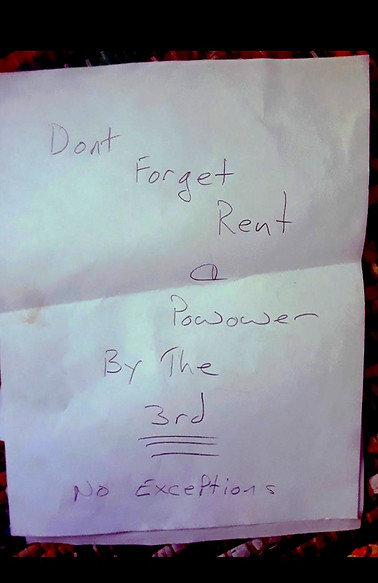 Dont
Forget
Rent
a
Powower
By The
3rd
No Exceptions